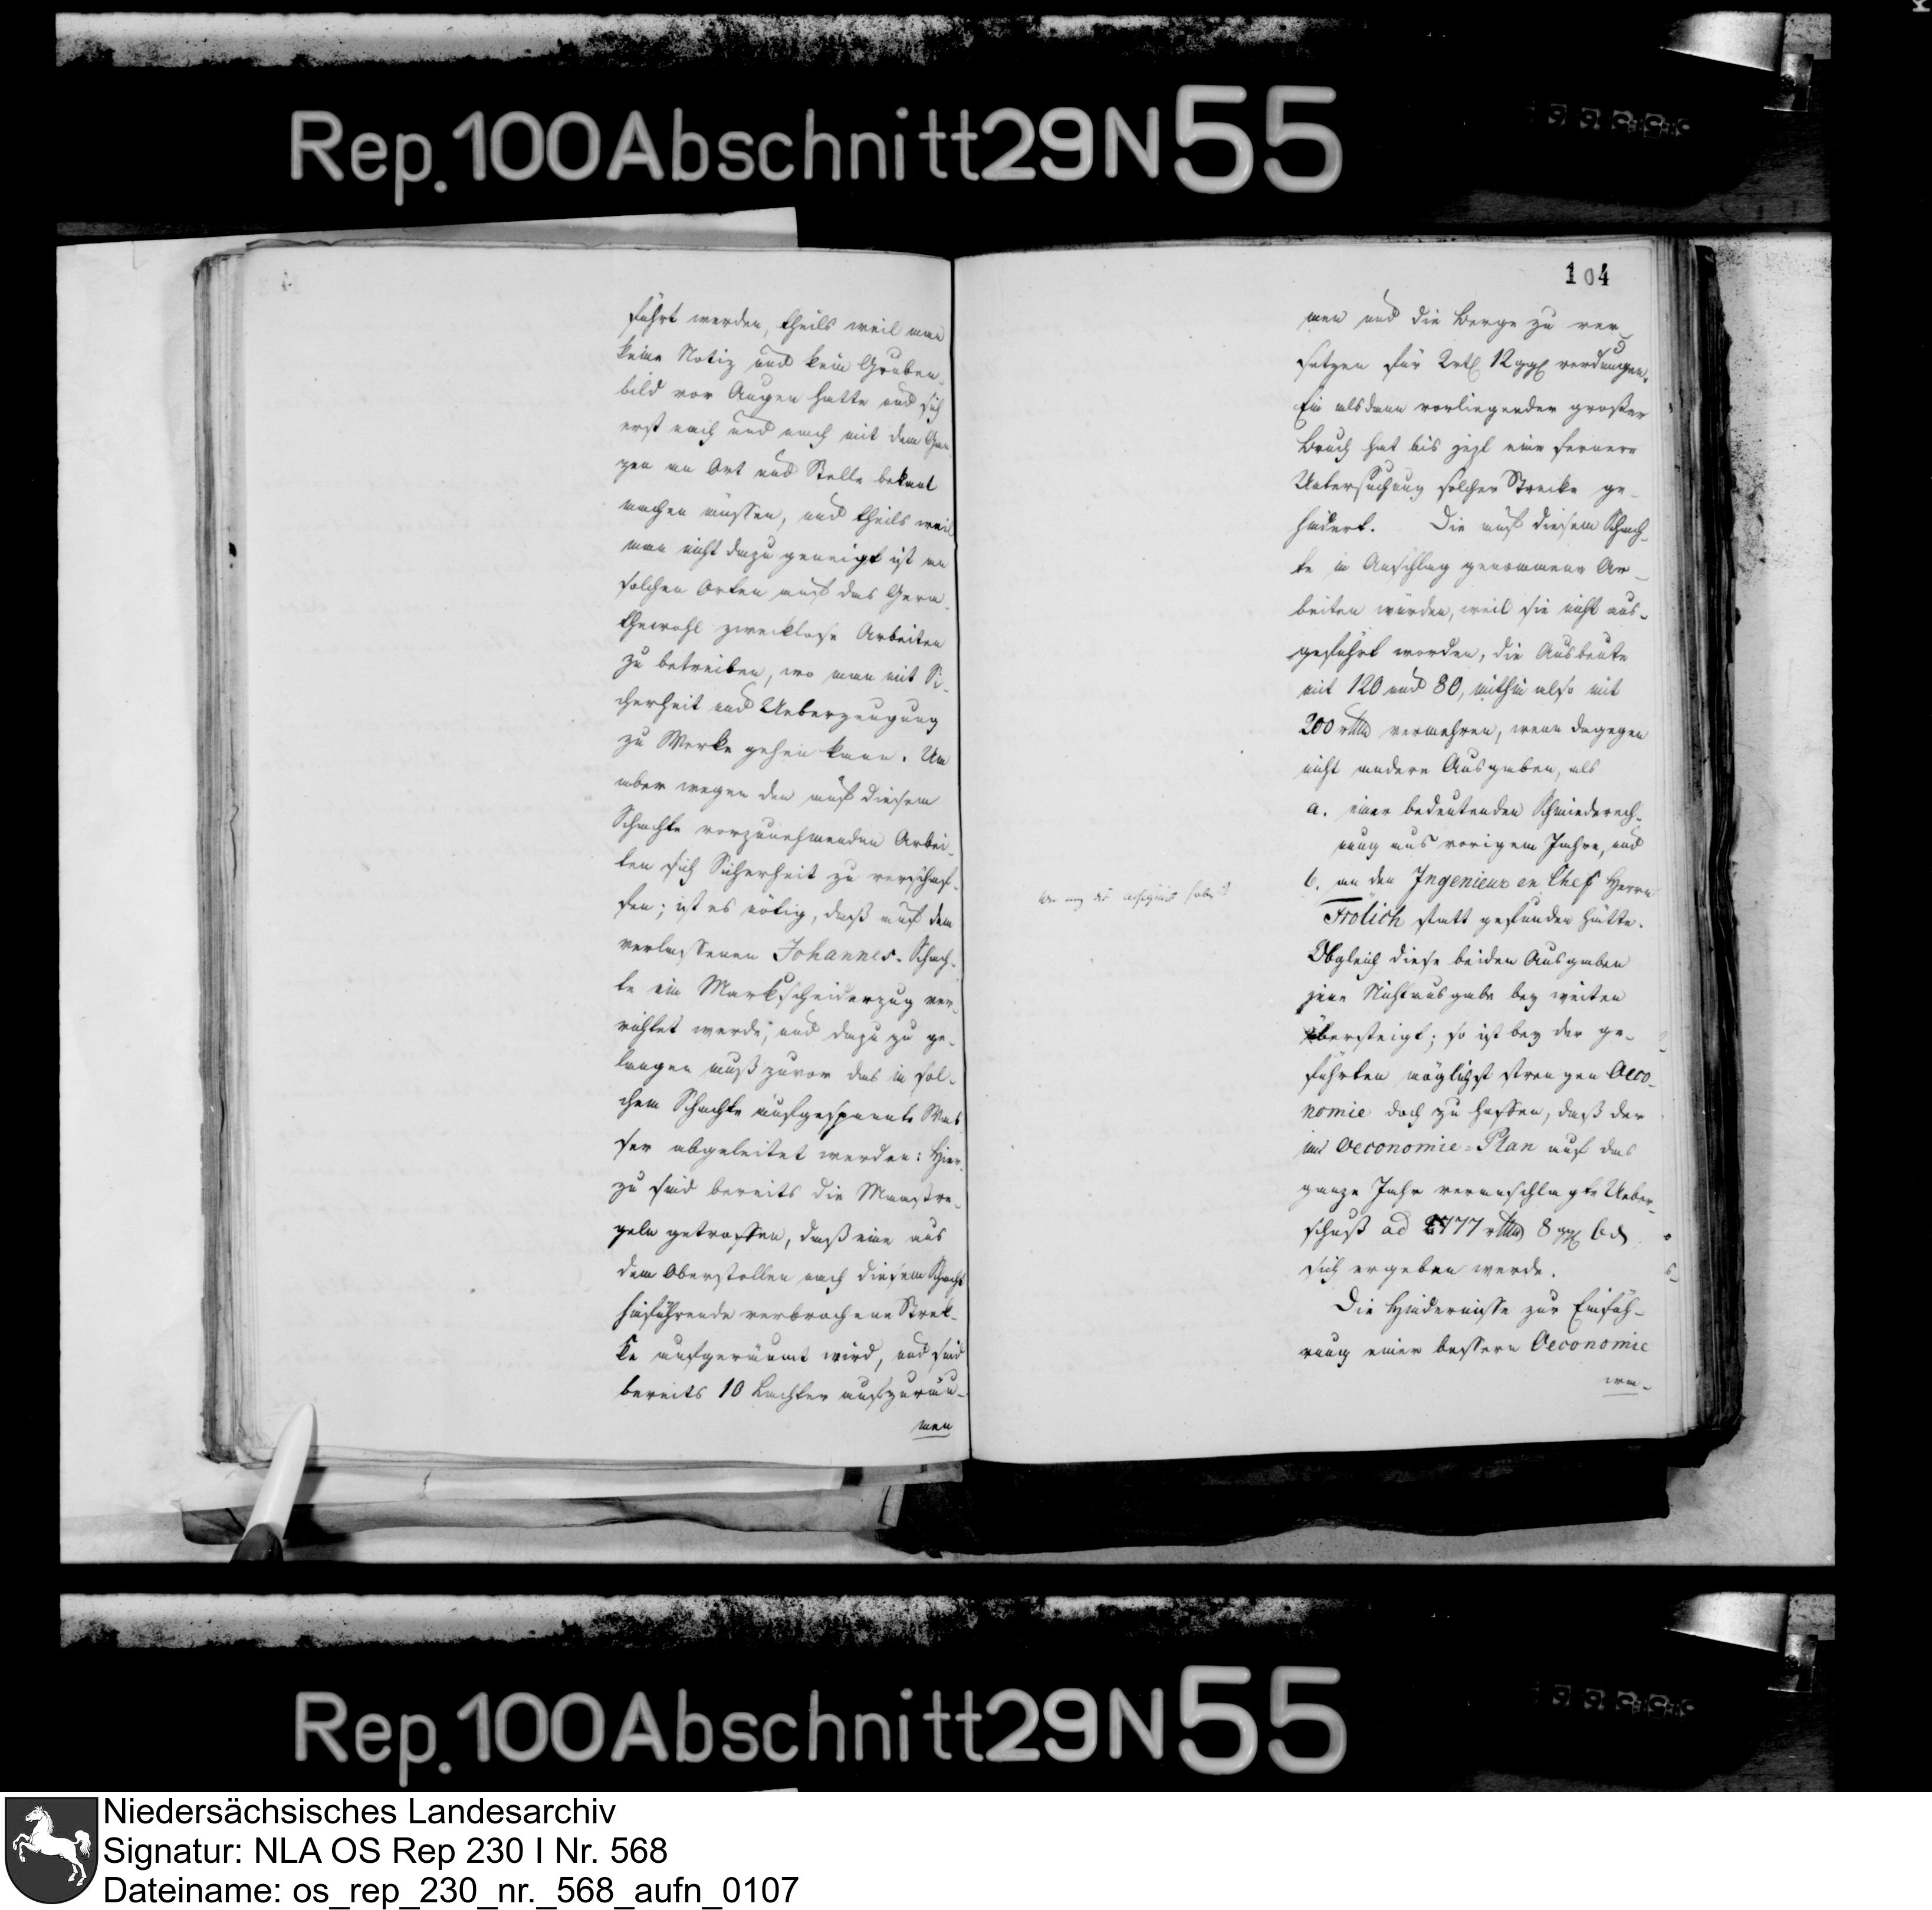 Rep. 100 Abschnitt 29 N 55
führt werden, theils weil man
keine Notiz und kein Gruben-
bild vor Augen hatte und sich
erst nach und nach mit dem Gan-
zen an Ort und Stelle bekant
machen müssen, und theils weil
man nicht dazu geneigt ist an
solchen Orten auf das Gera-
thewohl zwecklose Arbeiten
zu betreiben, wo man mit Si-
cherheit und Ueberzeugung
zu Werke gehen kann. Um
aber wegen den auf diesem
Schachte vorzunehmenden Arbei-
ten sich Sicherheit zu verschaf-
fen; ist es nötig, daß auf dem
verlassenen Johannes-Schach-
te ein Markscheiderzug ver-
richtet werde, und dazu zu ge-
langen muß zuvor das in sol-
chem Schachte aufgespannte Was
ser abgeleitet werden: Hier-
zu sind bereits die Maasre-
geln getroffen, daß eine aus
dem Oberstollen nach diesem Schacht
hinführende verbrochene Strek-
ke aufgeräumt wird, und sind
bereits 10 Lachter aufzuräu-
men
104
men und die Berge zu ver-
setzen für 2 rtl 12 ggl verdungen.
Ein alsdann vorliegender großer
Bruch hat bis jezt eine fernere
Untersuchung solcher Strecke ge-
hindert. Die auf diesem Schach-
te in Anschlag genommene Ar-
beiten würden, weil sie nicht aus-
geführt worden, die Ausbeute
mit 120 und 80, mithin also mit
200 rthlr vermehren, wenn dagegen
nicht andere Ausgaben, als
a. einer bedeutenden Schmiederech-
nung aus vorigem Jahre, und
b. an den Ingenieur en Chef Herrn
Frölich statt gefunden hätte.
Obgleich diese beiden Ausgaben
jene Nichtausgabe bey weiten
übersteigt; so ist bey der ge-
führten möglichst strengen Oeco-
nomie doch zu hoffen, daß der
im Oeconomie-Plan auf das
ganze Jahr veranschlagte Ueber-
schuß ad 2777 rthlr 8 ggl 6 d
sich ergeben werde.
Die Hindernisse zur Einfüh-
rung einer bessern Oeconomie
wa-
Rep. 100 Abschnitt 29 N 55
Niedersächsisches Landesarchiv
Signatur: NLA OS Rep 230 I Nr. 568
Dateiname: os_rep_230_nr._568_aufn_0107